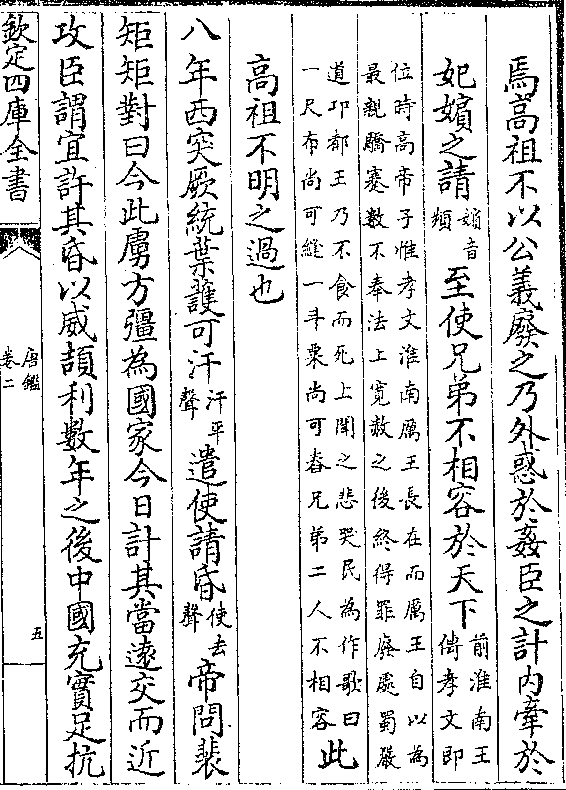 焉高祖不以公義廢之乃外惑於姦臣之計内牽於
妃嬪之請嬪音頻至使兄弟不相容於天下前淮南王傳孝文即
位時高帝子惟孝文淮南厲王長在而厲王自以為
最親驕蹇數不奉法上寛赦之後終得罪廢處蜀嚴
道邛都王乃不食而死上聞之悲哭民為作歌曰
一尺布尚可縫一斗粟尚可舂兄弟二人不相容此
高祖不明之過也
八年西突厥統葉護可汗汗平聲遣使請昏使去聲帝問裴
矩矩對曰今此虜方彊為國家今日計其當遠交而近
攻臣謂宜許其昏以威頡利數年之後中國充實足抗
欽定四庫全書
唐鑑
卷二
五